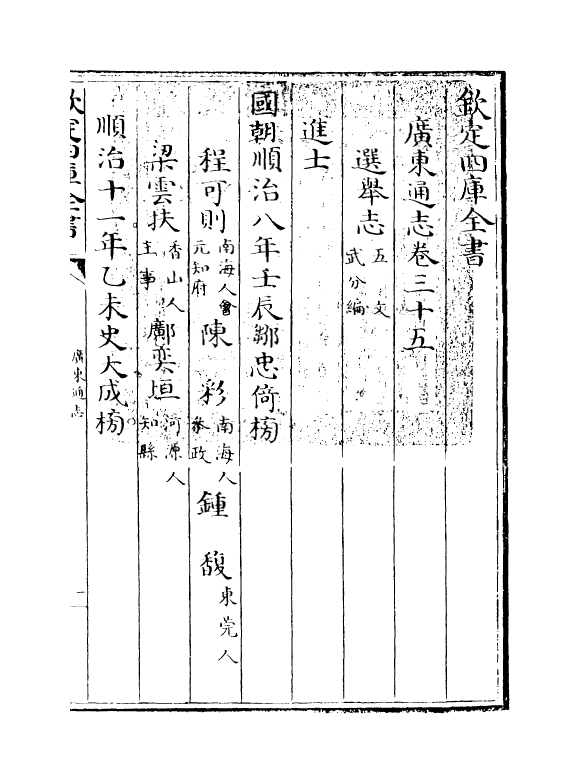 欽定四庫全書
廣東通志卷三十五
選舉志五 文武分編
進士
國朝順治八年壬辰鄒忠倚榜
程可則 南海人會元知府 陳彩 南海人參政 鍾馥 東莞人
梁雲扶 香山人主事 鄺奕垣 河源人知縣
順治十一年乙未史大成榜
欽定四庫全書
廣東通志
二